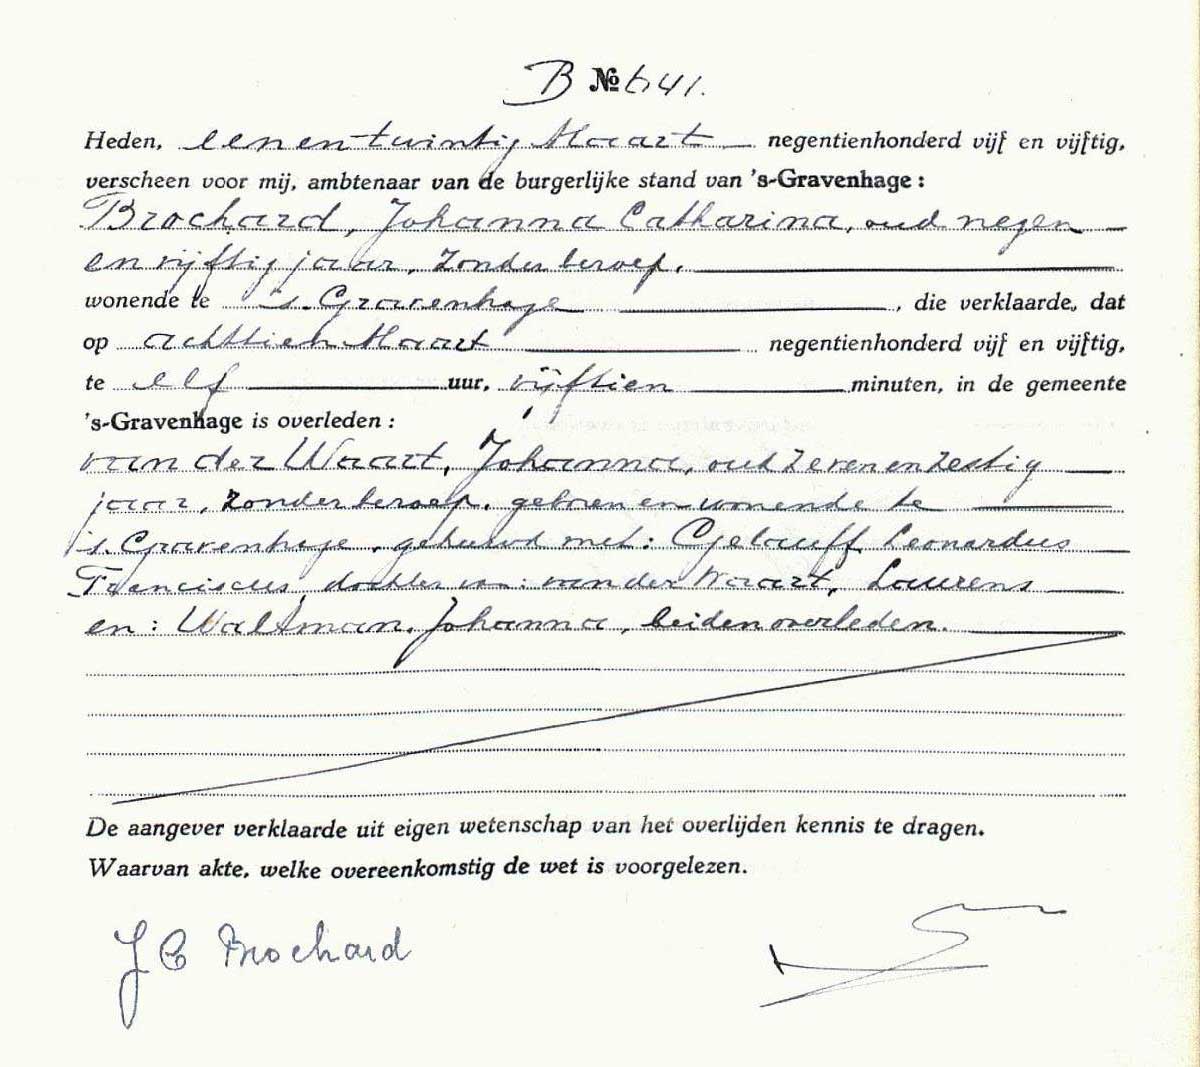 B № 641.
Heden, eenentwintig Maart negentienhonderd vijf en vijftig,
verscheen voor mij, ambtenaar van de burgerlijke stand van 's-Gravenhage :
Brochard, Johanna Catharina, oud negen
en vijftig jaar, zonder beroep,
wonende te 's-Gravenhage , die verklaarde, dat
op achttien Maart negentienhonderd vijf en vijftig,
te elf uur, vijftien minuten, in de gemeente
's-Gravenhage is overleden :
van der Waart, Johanna, oud zevenenzestig
jaar, zonder beroep, geboren en wonende te
's-Gravenhage, gehuwd met: Gelauff Leonardus
Franciscus, dochter van: van der Waart, Laurens
en: Waltman, Johanna, beiden overleden.
De aangever verklaarde uit eigen wetenschap van het overlijden kennis te dragen.
Waarvan akte, welke overeenkomstig de wet is voorgelezen.
J C Brochard